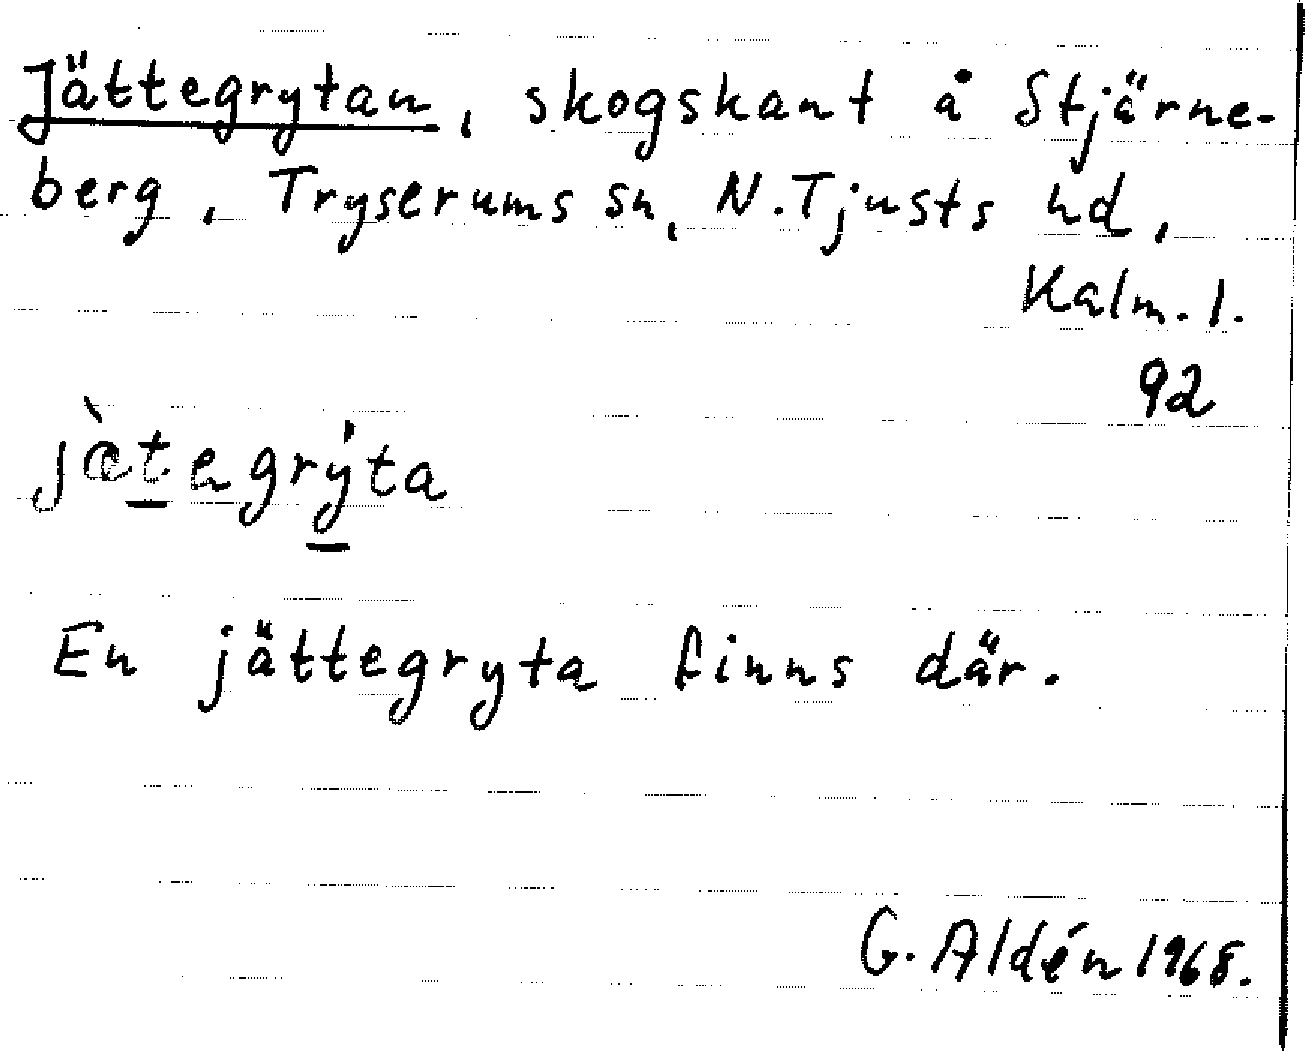 Jättegrytan, skogskant å Stjärne-
berg, Tryserums sn, N. Tjusts hd,
Kalm. l.
92
jὰtegry̍ta
En jättegryta finns där.
G. Aldén 1968.